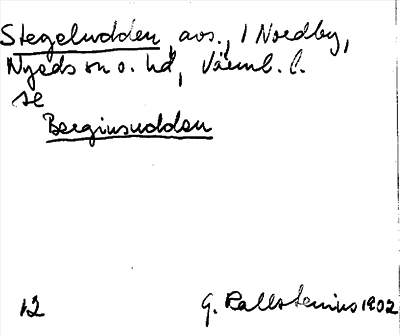 Stegeludden, avs., i Nordby,
Nyeds sn o. hd, Värml. l.
se
Berginsudden
12 G. Kallstenius 1902